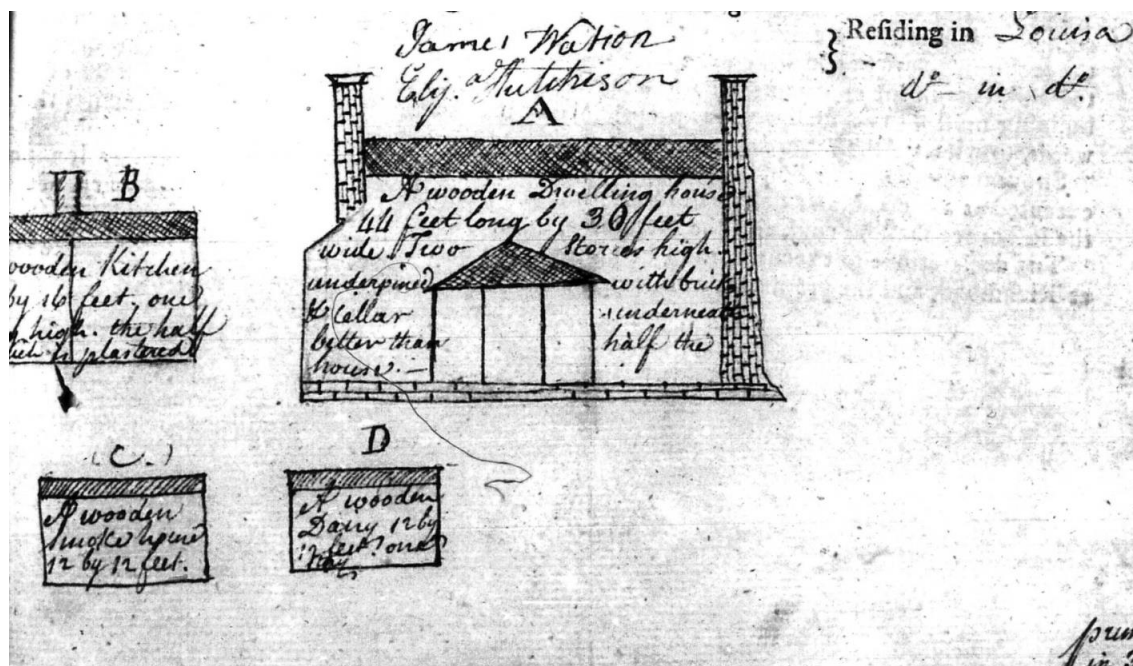 James Watson
Elij.a Hutchison
} Reſiding in Louisa
do in do.
A
A wooden Dwelling house
44 feet long by 30 feet
wide Two Stories high.
underpined with brick
& Cellar underneath
better than half the
house.—
B
wooden Kitchen
by 16 feet. one
high. the half
is plastered
(C.)
A wooden
smoke house
12 by 12 feet.
D
A wooden
Dairy 12 by
12 feet one